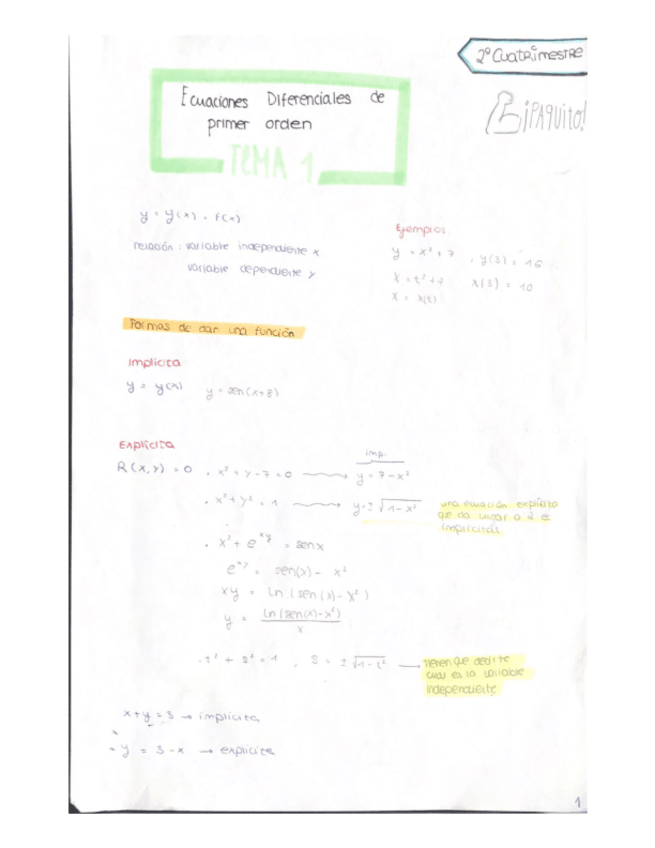 2º Cuatrimestre
¡PAquito!
Ecuaciones Diferenciales de
primer orden
TEMA 1
y = y(x) = f(x)
relación : variable independiente x
variable dependiente y
Ejemplos
y = x² + 7 , y(3) = 16
x = t² + 7 x(3) = 10
x = x(t)
Formas de dar una función
Implícita
y = y(x) y = sen(x+8)
Explícita
imp.
R(x,y) = 0 . x² + y - 7 = 0 → y = 7 - x²
. x² + y² = 1 → y = ± √1 - x²
una ecuación explícita
que da lugar a 2 e
implícitas
. x² + e^xy = senx
e^xy = sen(x) - x²
xy = Ln (sen(x) - x²)
y = Ln (sen(x) - x²) / x
. t² + s² = 1 , s = ± √1 - t² →
tienen que decirte
cual es la variable
independiente
x + y = 3 → implícita
y = 3 - x → explícita
1